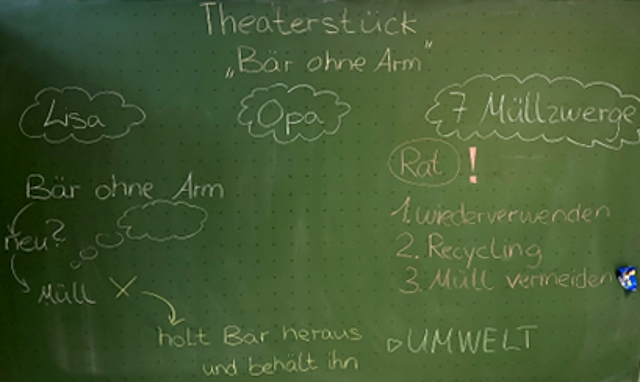 Theaterstück
„Bär ohne Arm"
Lisa
Opa
7 Müllzwerge
Rat !
Bär ohne Arm
neu?
Müll X
holt Bär heraus
und behält ihn
1. wiederverwenden
2. Recycling
3. Müll vermeiden
▷ UMWELT